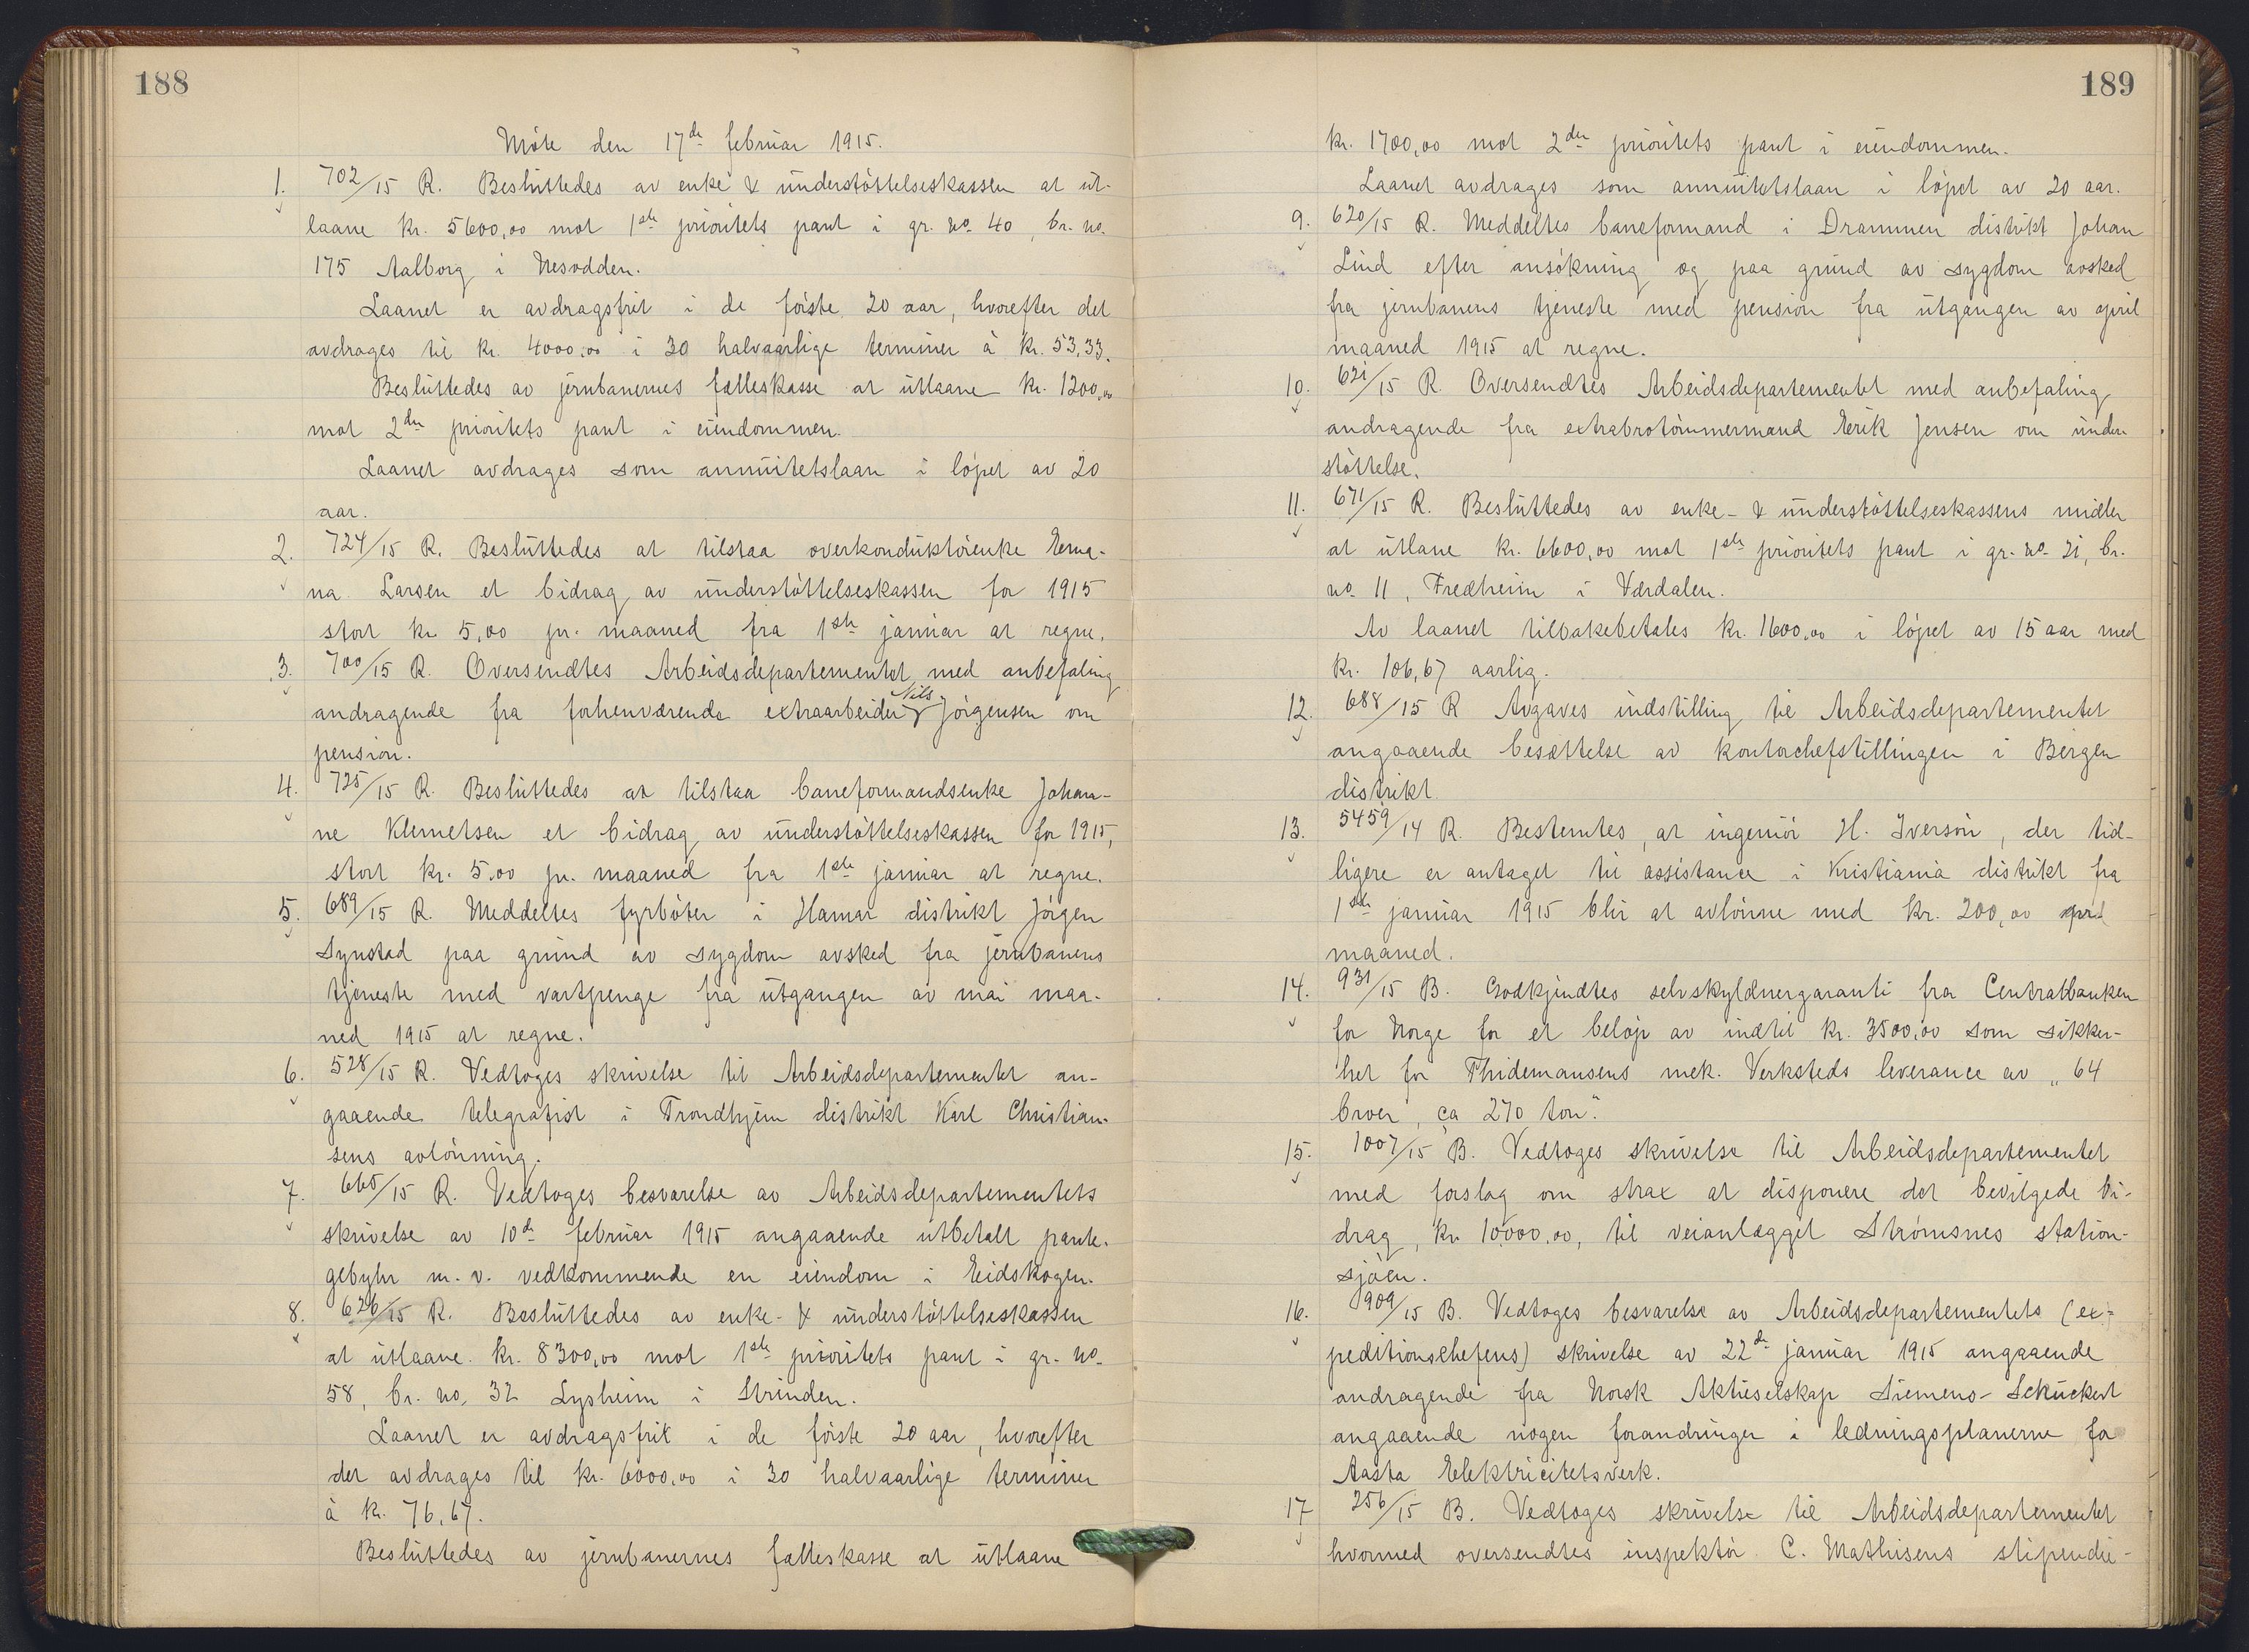 188
Möte den 17de februar 1915.
1. 702/15 R. Besluttedes av enke & understöttelseskassen at ut-
laane kr. 5600,00 mot 1ste prioritets pant i gr. no. 40, br. no.
175 Aalborg i Nesodden.
Laanet er avdragsfrit i de förste 20 aar, hvorefter det
avdrages til kr. 4000,00 i 30 halvaarlige terminer à kr. 53,33.
Besluttedes av jernbanernes fælleskasse at utlaane kr. 1200,00
mot 2den prioritets pant i eiendommen.
Laanet avdrages som annuitetslaan i löpet av 20
aar.
2. 724/15 R. Besluttedes at tilstaa overkonduktörenke Erna-
na Larsen et bidrag av understöttelseskassen for 1915
stort kr. 5,00 pr. maaned fra 1ste januar at regne.
3. 700/15 R. Oversendtes Arbeidsdepartementet med anbefaling
andragende fra forhenværende extraarbeider Nils Jörgensen om
pension.
4. 725/15 R. Besluttedes at tilstaa baneformandsenke Johan-
ne Klemetsen et bidrag av understöttelseskassen for 1915,
stort kr. 5,00 pr. maaned fra 1ste januar at regne.
5. 689/15 R. Meddeltes fyrböter i Hamar distrikt Jörgen
Synstad paa grund av sygdom avsked fra jernbanens
tjeneste med vartpenge fra utgangen av mai maa-
ned 1915 at regne.
6. 528/15 R. Vedtoges skrivelse til Arbeidsdepartementet an-
gaaende telegrafist i Trondhjem distrikt Karl Christian-
sens avlönning.
7. 665/15 R. Vedtoges besvarelse av Arbeidsdepartementets
skrivelse av 10de februar 1915 angaaende utbetalt pante-
gebyhr m. v. vedkommende en eiendom i Eidskogen.
8. 626/15 R. Besluttedes av enke- & understöttelseskassen
at utlaane kr. 8300,00 mot 1ste prioritets pant i gr. no.
58, br. no. 32 Lysheim i Strinden.
Laanet er avdragsfrit i de förste 20 aar, hvorefter
det avdrages til kr. 6000,00 i 30 halvaarlige terminer
à kr. 76,67.
Besluttedes av jernbanernes fælleskasse at utlaane
189
kr. 1700,00 mot 2den prioritets pant i eiendommen.
Laanet avdrages som annuitetslaan i löpet av 20 aar.
9. 620/15 R. Meddeltes baneformand i Drammen distrikt Johan
Lind efter ansökning og paa grund av sygdom avsked
fra jernbanens tjeneste med pension fra utgangen av april
maaned 1915 at regne.
10. 621/15 R. Oversendtes Arbeidsdepartementet med anbefaling
andragende fra extrabrotömmermand Erik Jensen om under-
stöttelse.
11. 671/15 R. Besluttedes av enke- & understöttelseskassens midler
at utlane kr. 6600,00 mot 1ste prioritets pant i gr. no. 21, br.
no. 11, Fredheim i Værdalen.
Av laanet tilbakebetales kr. 1600,00 i löpet av 15 aar med
kr. 106,67 aarlig.
12. 688/15 R Avgaves indstilling til Arbeidsdepartementet
angaaende besættelse av kontorchefstillingen i Bergen
distrikt.
13. 5459/14 R. Bestemtes, at ingeniör H. Iversön, der tid-
ligere er antaget til assistance i Kristiania distrikt fra
1ste januar 1915 blir at avlönne med kr. 200,00 pr.
maaned.
14. 931/15 B. Godkjendtes selvskyldnergaranti fra Centralbanken
for Norge for et belöp av indtil kr. 3500,00 som sikker-
het for Thidemansens mek. Verksteds leverance av „64
broer, ca 270 ton“.
15. 1007/15 B. Vedtoges skrivelse til Arbeidsdepartementet
med forslag om strax at disponere det bevilgede bi-
drag, kr. 10000,00, til veianlægget Strömsnes station-
sjöen.
16. 909/15 B. Vedtoges besvarelse av Arbeidsdepartementets (ex-
peditionschefens) skrivelse av 22de januar 1915 angaaende
andragende fra Norsk Aktieselskap Siemens-Schuckert
angaaende nogen forandringer i ledningsplanerne for
Aasta Elektricitetsverk.
17 256/15 B. Vedtoges skrivelse til Arbeidsdepartementet
hvormed oversendtes inspektör C. Mathisens stipendie-